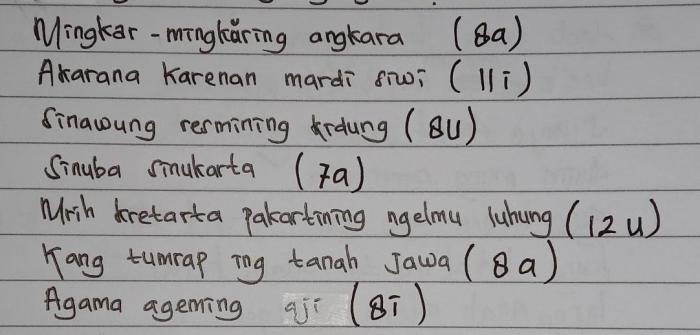 Mingkar-mingkǔring angkara (8a)
Akarana karenan mardi siwi (11i)
Sinawung resmining krdung (8u)
Sinuba sinukarta (7a)
Mrih kretarta pakartining ngelmu luhung (12u)
Kang tumrap ing tanah Jawa (8a)
Agama ageming aji (8i)